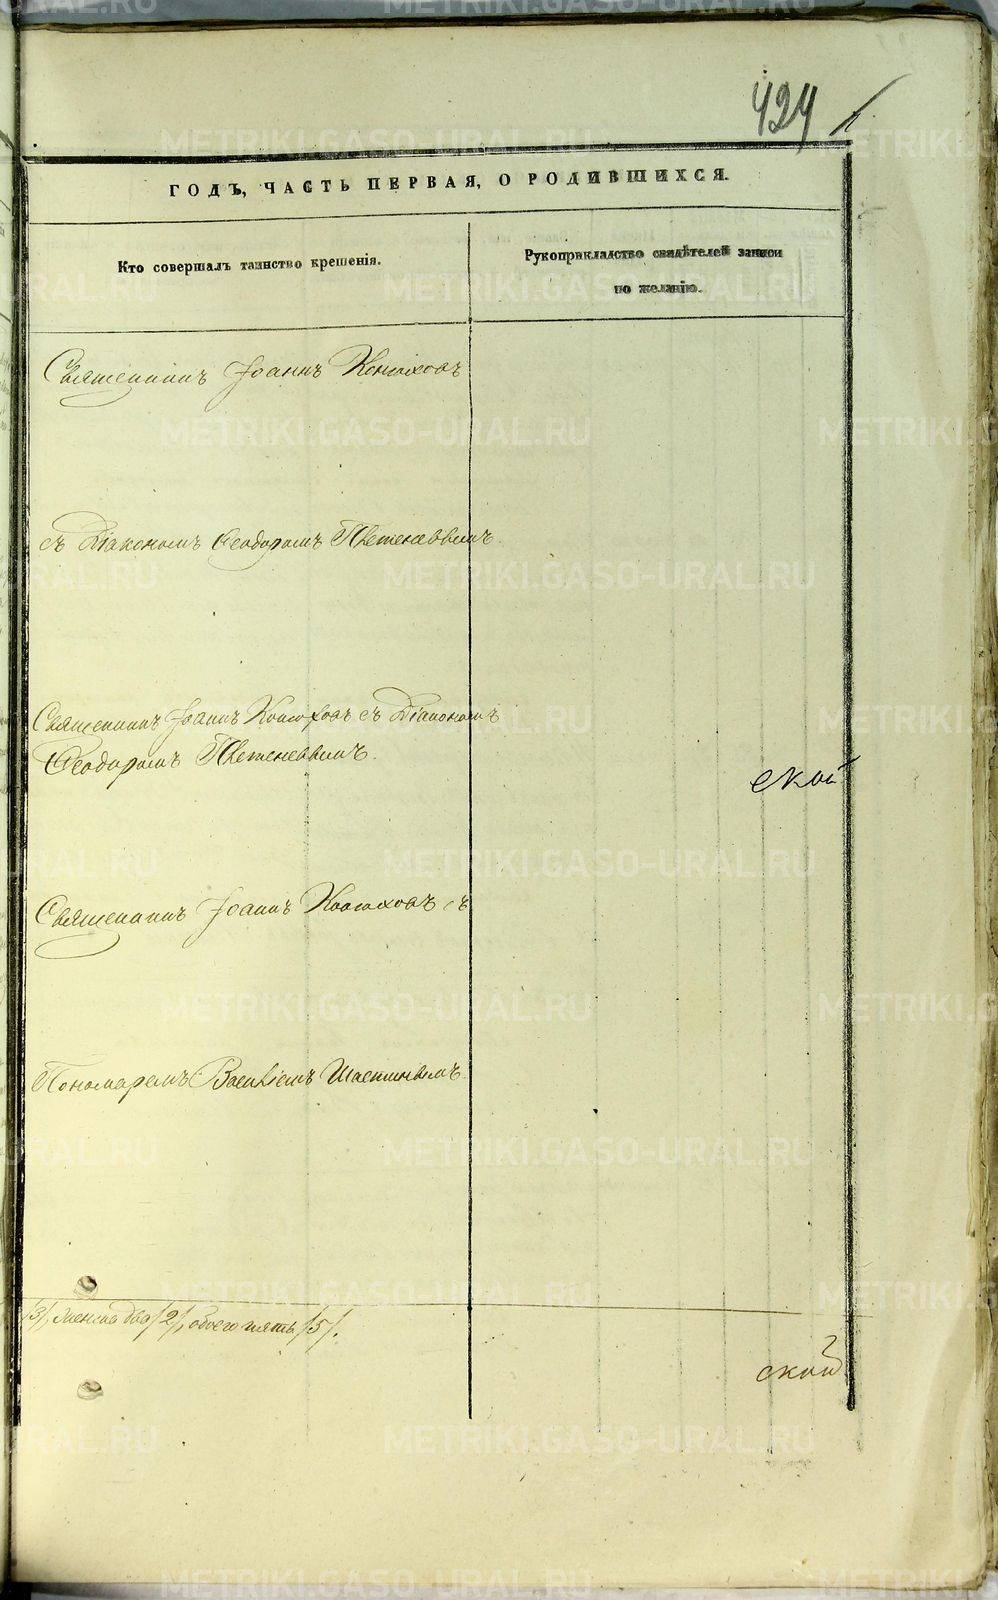 424
ГОДЪ, ЧАСТЬ ПЕРВАЯ, О РОДИВШИХСЯ.
Кто совершалъ таинство крещенія.
Рукоприкладство свидѣтелей записи
по желанію.
Священникъ Іоаннъ Конюховъ
съ Діакономъ Ѳеодоромъ
Священникъ Іоаннъ Конюховъ съ Діакономъ
Ѳеодоромъ
ской
Священникъ Іоаннъ Конюховъ съ
Пономаремъ Василіемъ
/3/, женска два /2/, обоего пять /5/.
ской
METRIKI.GASO-URAL.RU